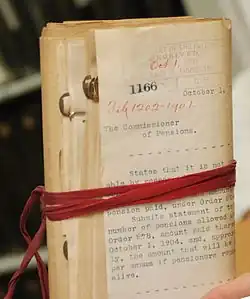 RECEIVED
Oct 1
1166
October 1,
Feb 1202-1901
The Commissioner
of Pensions.
States that it is not
able by
pension paid, under Order
Submits statement of
number of pensions allowed
Order #78, amount paid
October 1, 1904, and
by, the amount that will be
per annum if pensioners
alive.